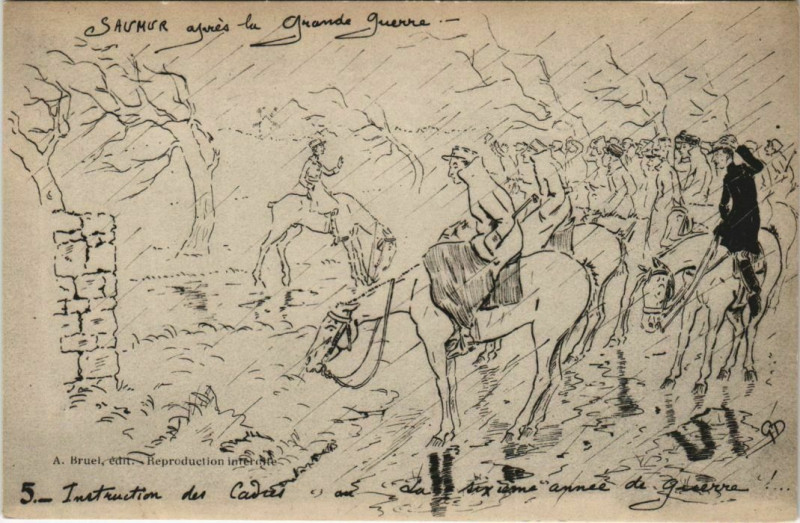 SAUMUR après la Grande Guerre.—
GD
A. Bruel, édit. - Reproduction interdite
5.— Instruction des Cadres, ou La "sixième" année de guerre !...